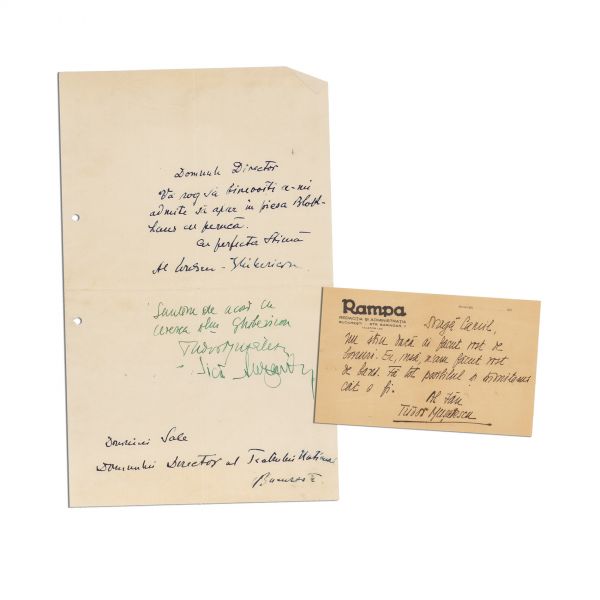 Domnule Director
Vă rog să binevoiți a-mi
admite să apar în piesa Block-
haus cu perucă.
Cu perfectă stimă
Al
Suntem de acord cu
cererea dlui Ghibericon
Tudor Mușatescu
Sică
Domniei Sale
Domnului Director al Teatrului Național
București
Rampa
REDACȚIA ȘI ADMINISTRAȚIA
BUCUREȘTI
Dragă Camil,
nu știu dacă ai făcut rost de
bonuri. Eu, însă, n'am făcut rost
de bani. Fă tot posibilul și
cât o fi.
Al tău
Tudor Mușatescu